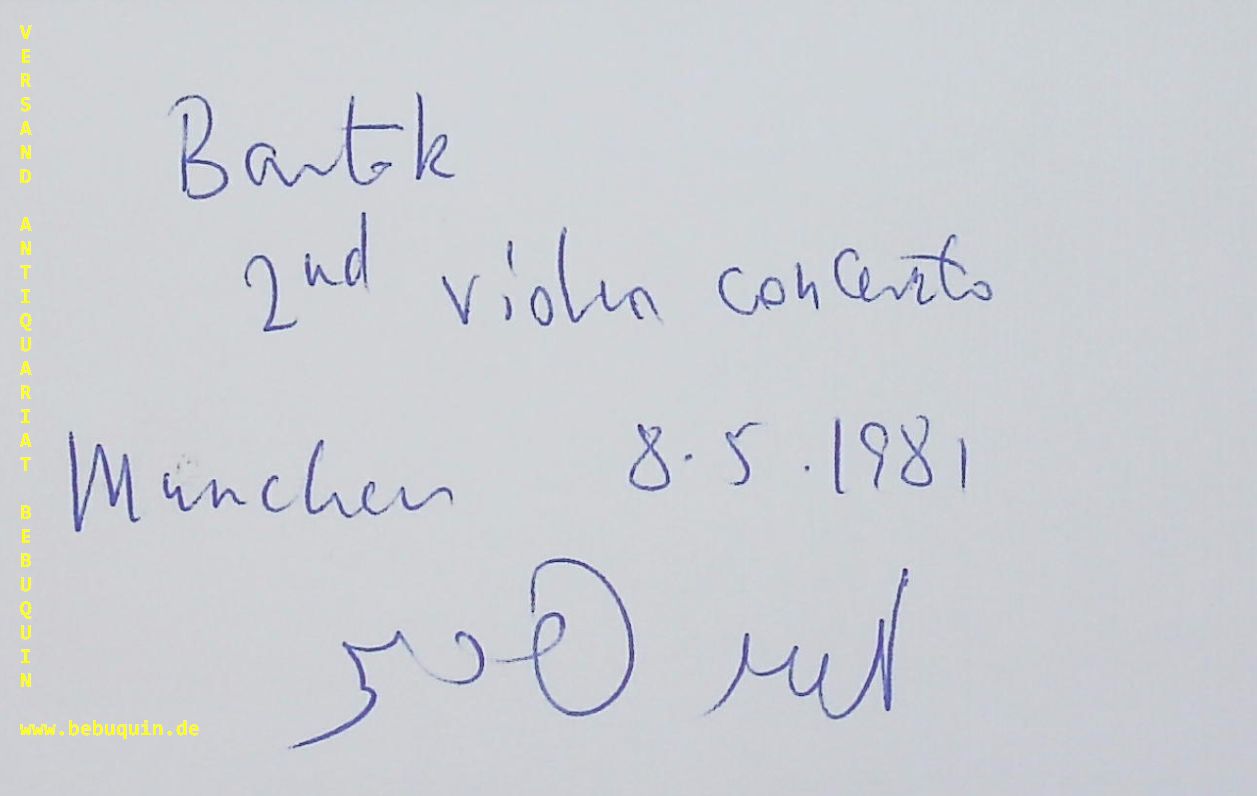 Bartok
2nd violin concerto
München 8.5.1981
VERSAND ANTIQUARIAT BEBUQUIN
www.bebuquin.de